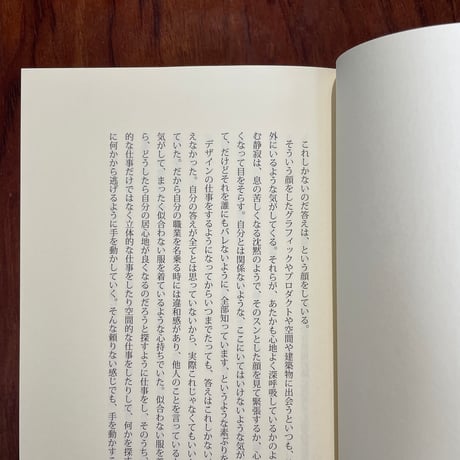 これしかないのだ答えは、という顔をしている。
そういう顔をしたグラフィックやプロダクトや空間や建築物に出会うといつも、
外にいるような気がしてくる。それらが、あたかも心地よく深呼吸しているかの
む静寂は、息の苦しくなる沈黙のようで、そのスンとした顔を見て緊張するか、心
くなって目をそらす。自分とは関係ないような、ここにいてはいけないような気が
て、だけどそれを誰にもバレないように、全部知っています、というような素ぶりを
デザインの仕事をするようになってからいつまでたっても、答えはこれしかない
えなかった。自分の答えが全てとは思っていないから、実際これじゃなくてもいい
ていた。だから自分の職業を名乗る時には違和感があり、他人のことを言っている
気がして、まったく似合わない服を着ているような心持ちでいた。似合わない服を
ら、どうしたら自分の居心地が良くなるのだろうと探すように仕事をし、そのうち、
的な仕事だけではなく立体的な仕事をしたり空間的な仕事をしたりして、何かを探す
に何かから逃げるように手を動かしていく。そんな頼りない感じでも、手を動かすこ